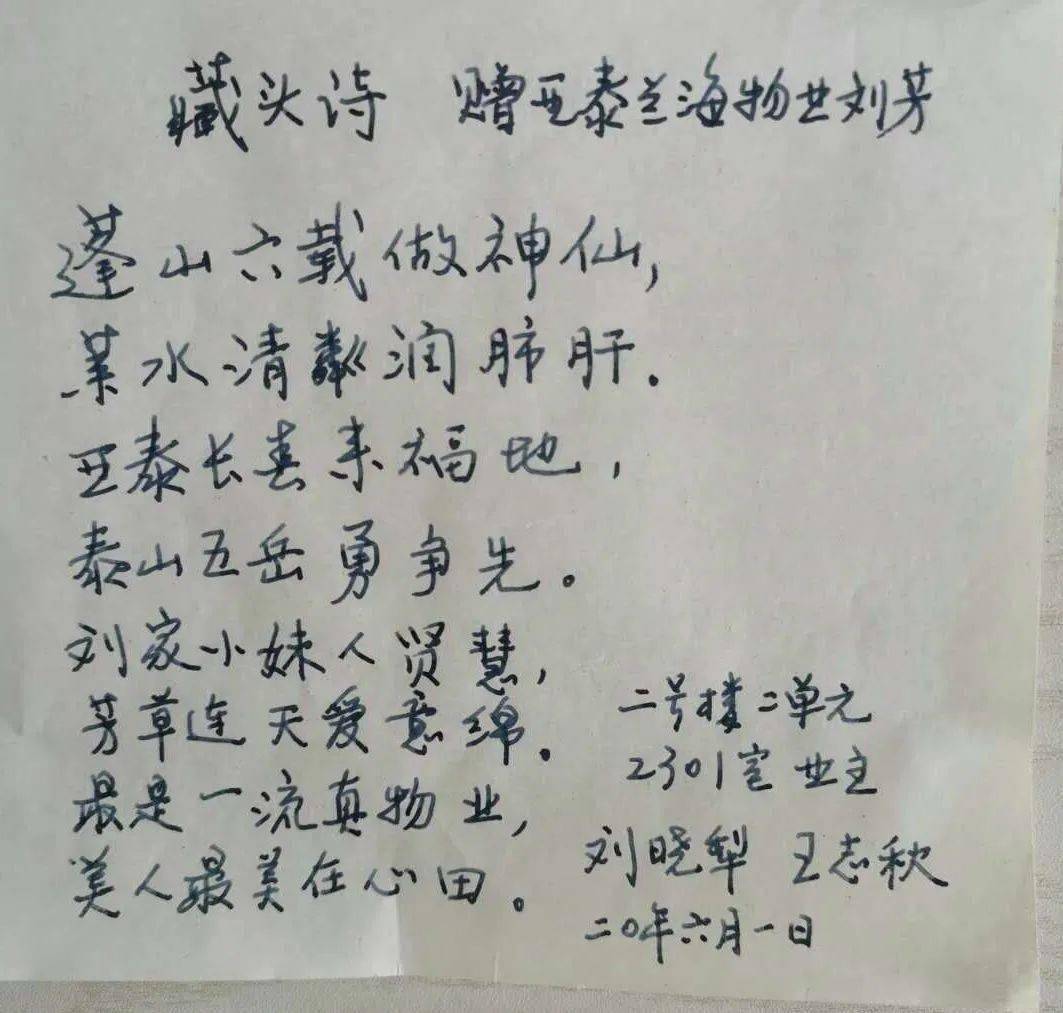 藏头诗 赠亚泰兰海物业刘芳
蓬山六载做神仙,
莱水清粼润肺肝.
亚泰长春来福地,
泰山五岳勇争先。
刘家小妹人贤慧,
芳草连天爱意绵.
最是一流真物业,
美人最美在心田。
二号楼二单元
2301室业主
刘晓犁 王志秋
二0年六月一日